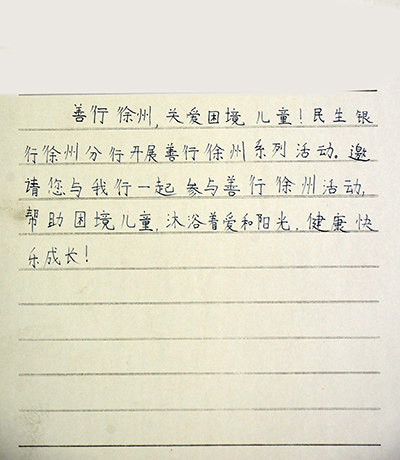 善行徐州,关爱困境儿童!民生银
行徐州分行开展善行徐州系列活动.邀
请您与我行一起参与善行徐州活动,
帮助困境儿童,沐浴着爱和阳光,健康快
乐成长!